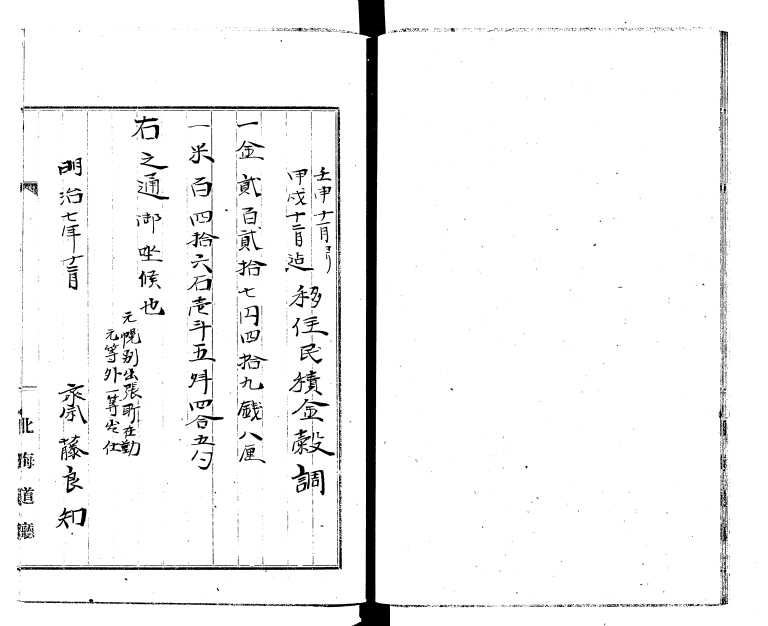 壬申十一月ヨリ
甲戌十一月迠
移住民積金穀調
一金貳百貳拾七円四拾九銭八厘
一米百四拾六石壱斗五舛四合五勺
右之通御坐候也
元幌別出張所在勤
元等外一等出仕
明治七年十一月
斎藤良知
北海道廳